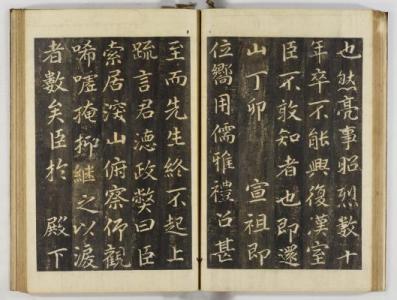 也然亮事昭烈數十
年卒不能興復漢室
臣不敢知者也即還
山丁卯 宣祖即
位嚮用儒雅禮召甚
至而先生終不起上
疏言君德政弊曰臣
索居深山俯察仰觀
唏噓掩抑繼之以淚
者數矣臣於 殿下